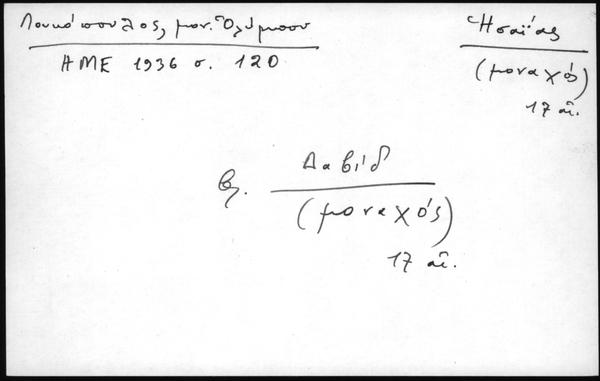 Λουκόπουλος, μον. Ὀλύμπου
ΗΜΕ 1936 σ. 120
Ἡσαΐας
(μοναχός)
17 αἰ.
βλ. Δαβίδ
(μοναχός)
17 αἰ.